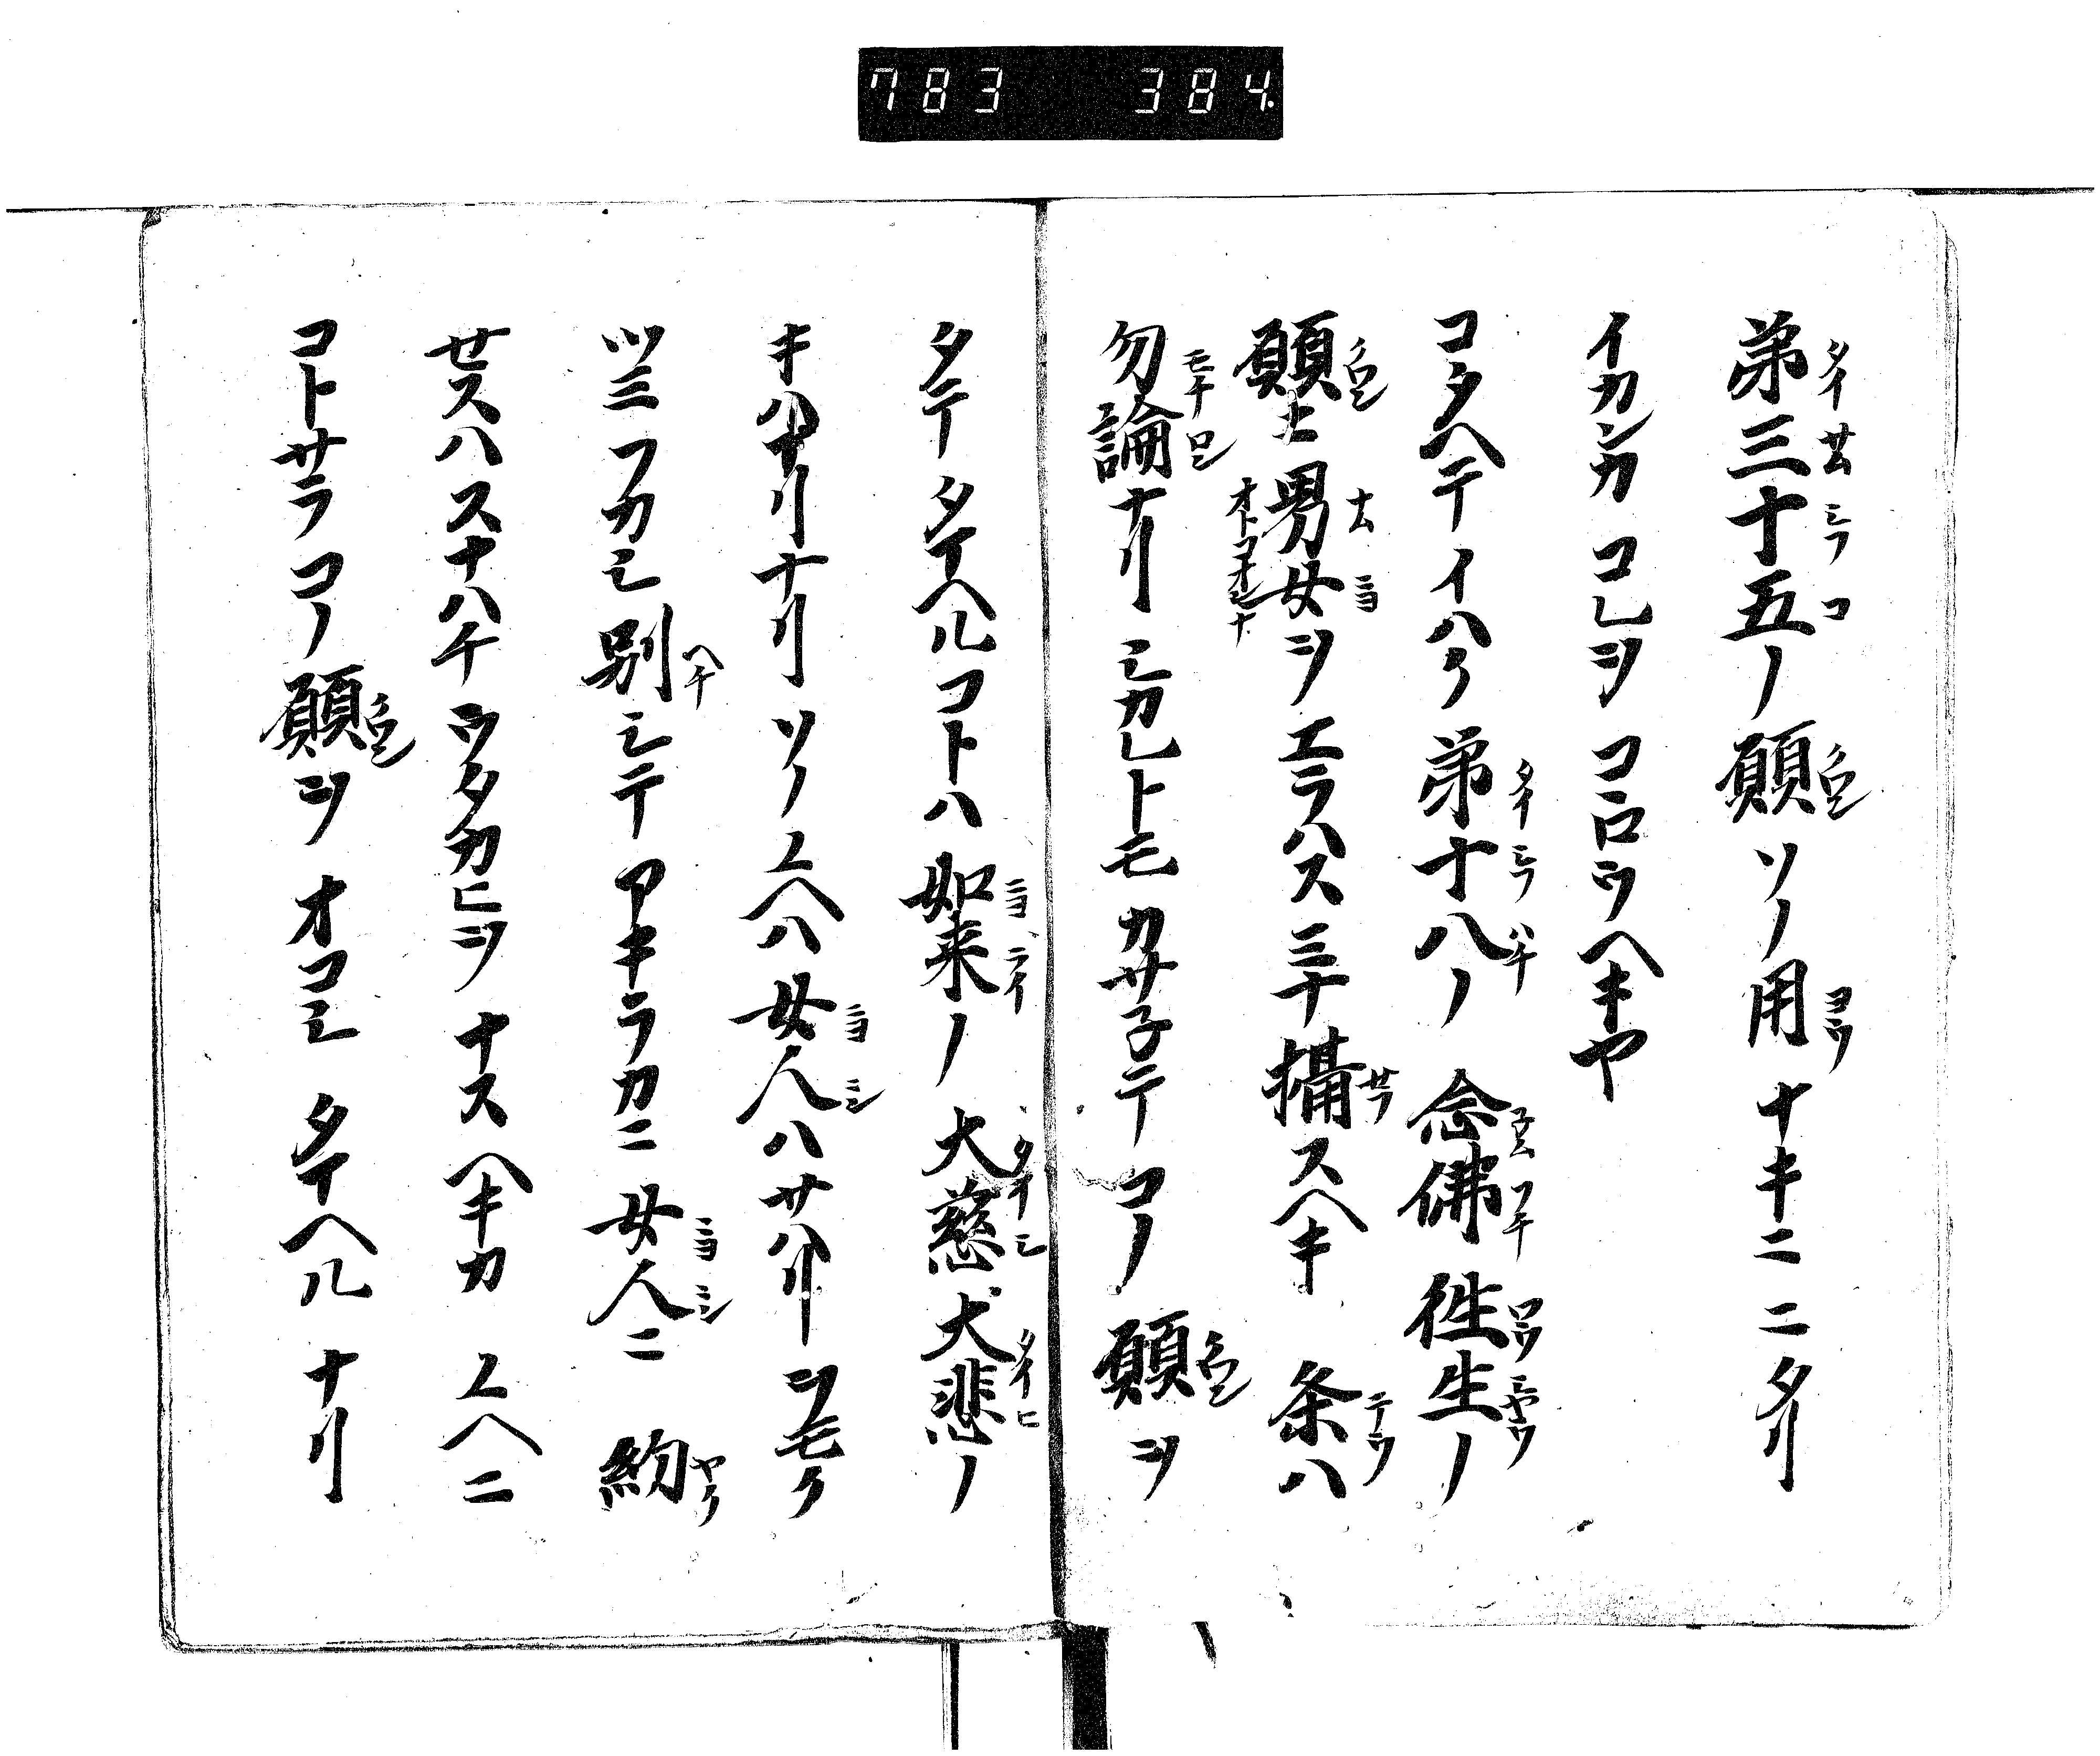 783 384
弟三十五ノ願ソノ用ナキニニタリ
イカンカコレヲコヽロウヘキヤ
コタヘテイハク弟十八ノ念佛往生ノ
願ト男女ヲエラハスミナ攝スヘキ条ハ
勿論ナリシカレトモカサ子テコノ願ヲ
タテタマヘルコトハ如来ノ大慈大悲ノ
キハマリナリソノユヘハ女人ハサハリヲモク
ツミフカシ別シテアキラカニ女人ニ約
セスハスナハチウタカヒヲナスヘキカユヘニ
コトサラコノ願ヲオコシタマヘルナリ